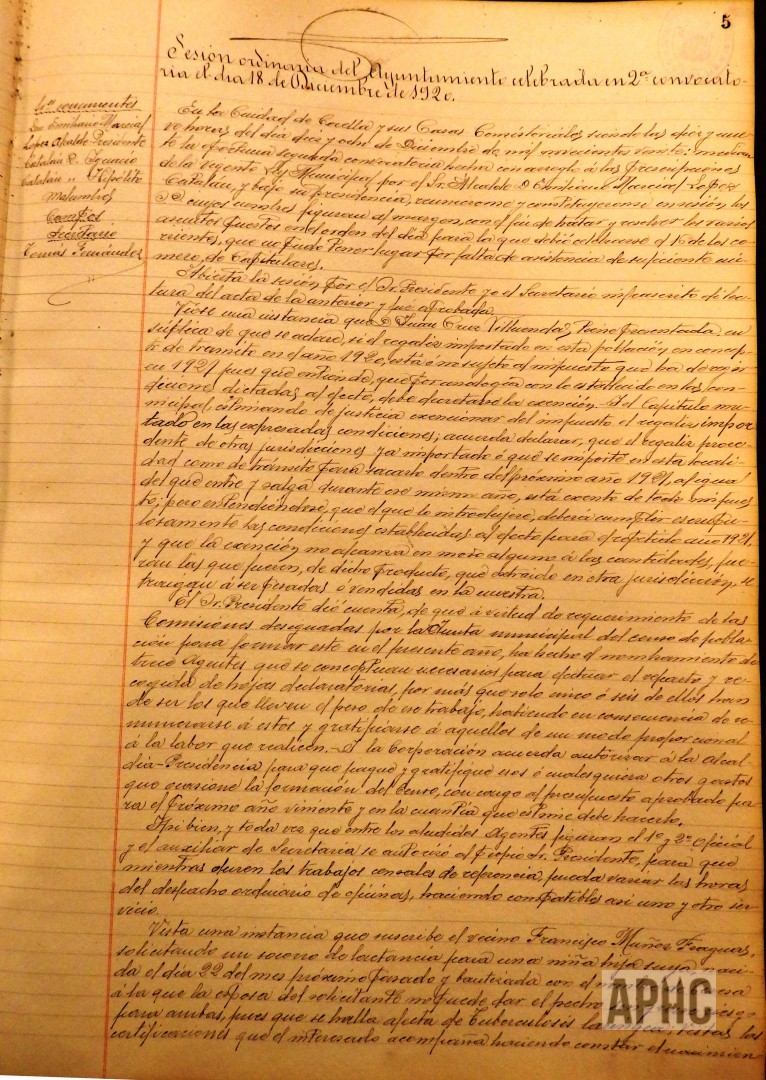 5
Sesión ordinaria del Ayuntamiento celebrada en 2ª convocato-
ria el dia 18 de Diciembre de 1920.
Sres. concurrentes
Don Emiliano Marcial
López Alcalde-Presidente
Catalán D. Ignacio
Catalán " Hipólito
Malumbres
Campos
Secretario
Tomás Fernández
En la Ciudad de Corella y sus Casas Consistoriales siendo las diez y nue-
ve horas del dia diez y ocho de Diciembre de mil novecientos veinte: mediante
la oportuna segunda convocatoria hecha con arreglo á las prescripciones
de la vigente Ley Municipal, por el Sr. Alcalde D. Emiliano Marcial López
Catalán, y bajo su presidencia, reunieronse y constituyeronse en sesión, los
SS. cuyos nombres figuran al margen, con el fin de tratar y resolver los varios
asuntos puestos en el orden del dia para la que debió celebrarse el 16 de los co-
rrientes, que no pudo tener lugar por falta de asistencia de suficiente nú-
mero de Capitulares.
Abierta la sesión por el Sr. Presidente yo el Secretario infrascrito di lec-
tura del acta de la anterior y fué aprobada.
Vióse una instancia que D. Juan Cruz Villuendas, tiene presentada en
súplica de que se aclare, si el regaliz importado en esta población, en concep-
to de tránsito en el año 1920, está ó no sujeto al impuesto que ha de regir
en 1921 pues que entiende, que por analogía con lo establecido en las con-
diciones dictadas al efecto, debe decretarse la exención. Y el Capítulo mu-
nicipal, estimando de justicia exencionar del impuesto el regaliz impor
tado en las expresadas condiciones; acuerda declarar, que el regaliz proce-
dente de otras jurisdicciones ya importado ó que se importe en esta locali-
dad como de tránsito para sacarlo dentro del próximo año 1921, al igual
del que entre y salga durante ese mismo año, está exento de todo impues
to; pero entendiendose, que el que lo introdujere, deberá cumplir escrupu-
losamente las condiciones establecidas al efecto para el repetido año 1921
y que la exención, no alcanza en modo alguno á las cantidades, fue-
ran las que fueren, de dicho producto, que extraido en otra jurisdicción, se
traigan á ser pesadas ó vendidas en la nuestra.
El Sr. Presidente dió cuenta, de que á virtud de requerimiento de las
Comisiones designadas por la Junta municipal del censo de pobla-
ción para formar este en el presente año, ha hecho el nombramiento de
trece Agentes que se conceptuan necesarios para efectuar el reparto y re-
cogida de hojas declaratorias, por más que solo cinco ó seis de ellos han
de ser los que lleven el peso de ese trabajo, habiendo en consecuencia de re-
munerarse á estos y gratificarse á aquellos de un modo proporcional
á la labor que realicen.- Y la Corporación acuerda autorizar á la Alcal
día-Presidencia para que pague y gratifique esos ó cualesquiera otros gastos
que ocasione la formación del Censo, con cargo al presupuesto aprobado pa-
ra el próximo año viniente y en la cuantía que estime debe hacerlo.
Asi bien, y toda vez que entre los aludidos Agentes figuran el 1º y 2º oficial
y el auxiliar de Secretaría se autorizó al propio Sr. Presidente, para que
mientras duren los trabajos censales de referencia, pueda variar las horas
del despacho ordinario de oficinas, haciendo compatibles asi uno y otro ser-
vicio.
Vista una instancia que suscribe el vecino Francisco Muñoz Fraguas,
solicitando un socorro de lactancia para una niña hija suya naci-
da el dia 22 del mes próximo pasado y bautizada con el
á la que la esposa del solicitante no puede dar el pecho
para ambas, pues que se halla afecta de Tuberculosis
certificaciones que el interesado acompaña haciendo constar el nacimien
APHC